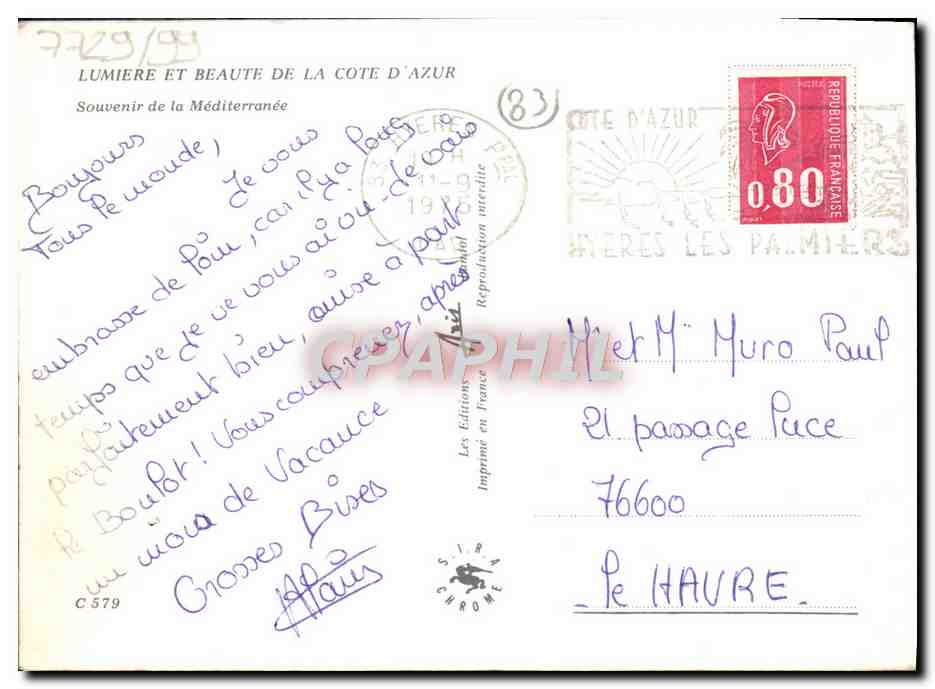 7729/99
LUMIERE ET BEAUTE DE LA COTE D'AZUR
Souvenir de la Méditerranée
Bonjours
Tous le monde,
Je vous
embrasse de loin, car il y a longs
temps que je ne vous ai vu. Je vais
parfaitement bien, mise à part
le Boulot! Vous comprenez, après
un mois de Vacance
Grosses Bises
Alain
C 579
(83)
83 HYERES PPAL
11-9
COTE D'AZUR
HYERES LES PALMIERS
REPUBLIQUE FRANÇAISE
POSTES
0,80
Les Editions Aris Bandol
Imprimé en France Reproduction interdite
CPAPHIL
S.I.R.A
CHROME
Mr et Me Muro Paul
21 passage Puce
76600
Le HAVRE